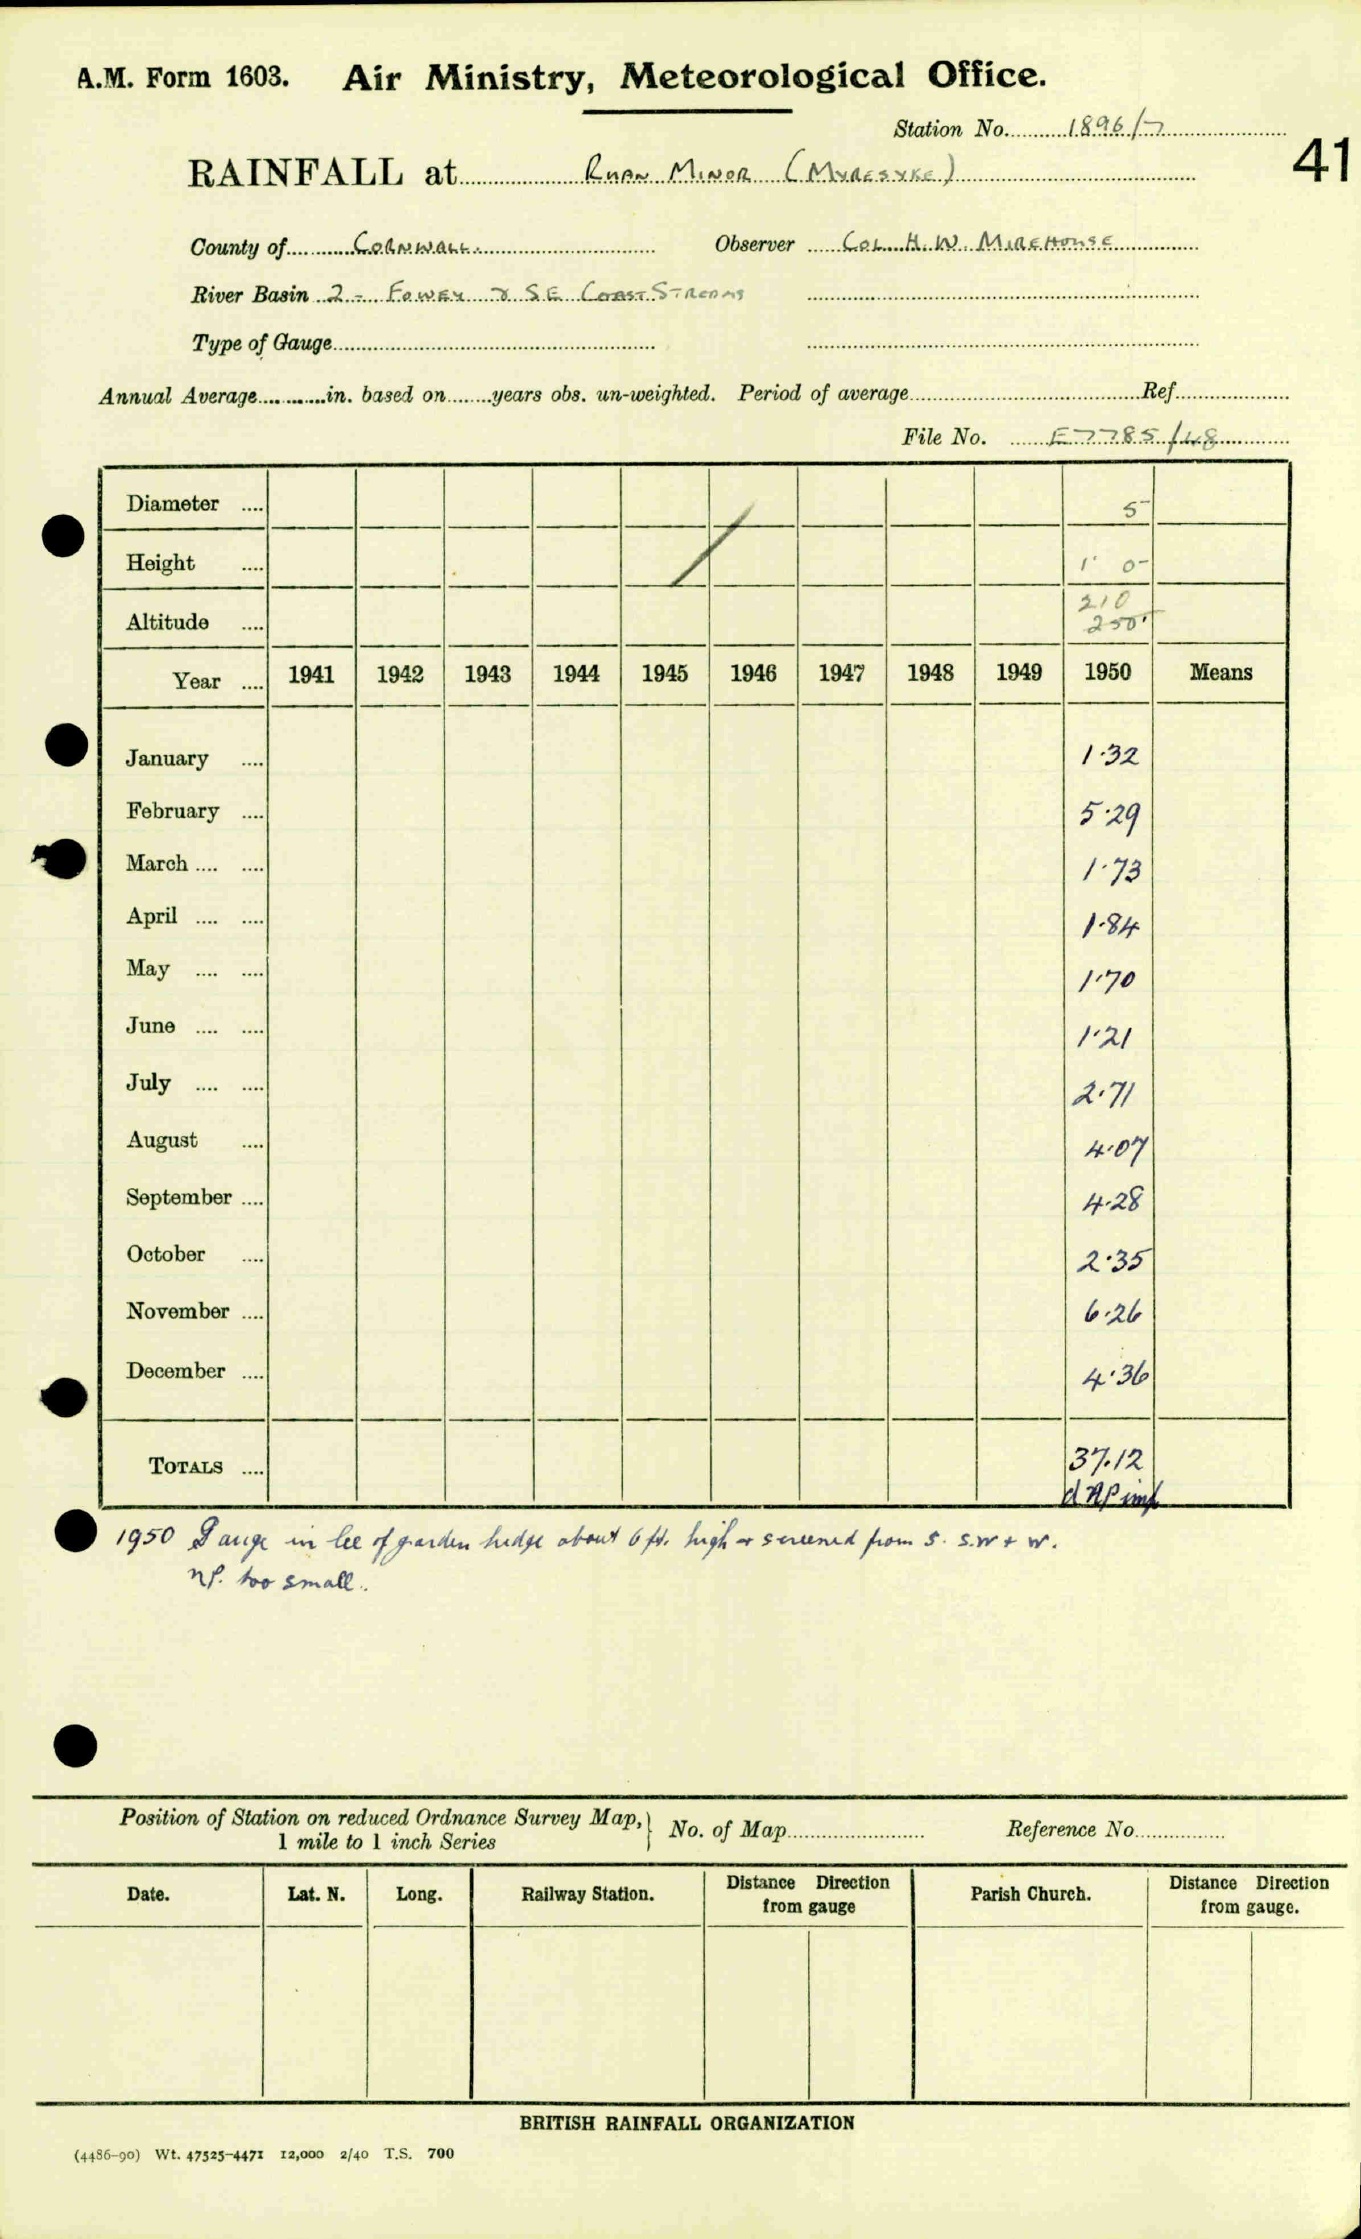 A.M. Form 1603. Air Ministry, Meteorological Office.
Station No. 1896/7
41
RAINFALL at RUAN MINOR (MYRESYKE)
County of CORNWALL. Observer COL H. W. MIREHOUSE
River Basin 2 - FOWEY & SE COAST STREAMS
Type of Gauge
Annual Average in. based on years obs. un-weighted. Period of average Ref.
File No. E7785/48
Diameter .... 5
Height .... 1' 0"
Altitude .... 210
250'
Year .... 1941 1942 1943 1944 1945 1946 1947 1948 1949 1950 Means
January .... 1.32
February .... 5.29
March .... .... 1.73
April .... .... 1.84
May .... .... 1.70
June .... .... 1.21
July .... .... 2.71
August .... 4.07
September .... 4.28
October .... 2.35
November .... 6.26
December .... 4.36
TOTALS .... 37.12
d NP imp
1950 Gauge in lee of garden hedge about 6 ft. high & screened from S. S.W + W.
NP. too small.
Position of Station on reduced Ordnance Survey Map, } No. of Map Reference No.
1 mile to 1 inch Series
Date. Lat. N. Long. Railway Station. Distance Direction from gauge Parish Church. Distance Direction from gauge.
BRITISH RAINFALL ORGANIZATION
(4486-90) Wt. 47525-4471 12,000 2/40 T.S. 700